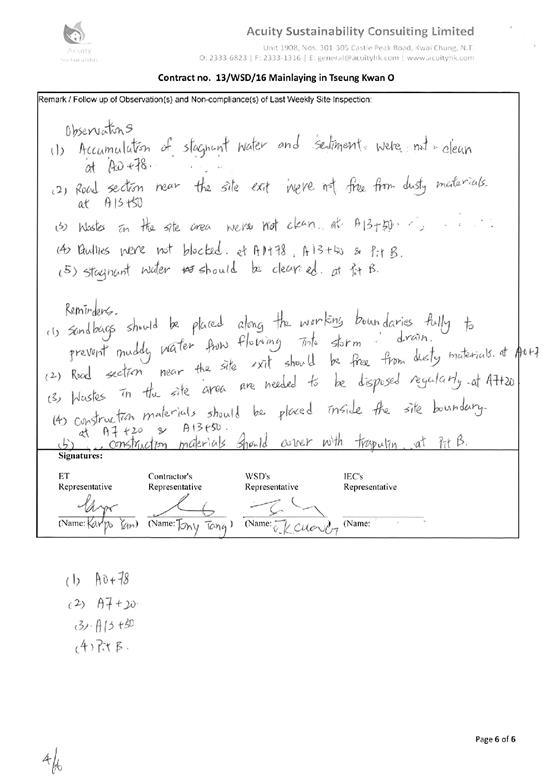 Acuity Sustainability Consulting Limited
Acuity
Sustainability
Unit 1908, Nos. 301-305 Castle Peak Road, Kwai Chung, N.T.
O: 2333-6823 | F: 2333-1316 | E: general@acuityhk.com | www.acuityhk.com
Contract no. 13/WSD/16 Mainlaying in Tseung Kwan O
Remark / Follow up of Observation(s) and Non-compliance(s) of Last Weekly Site Inspection:
Observations
(1) Accumulation of stagnant water and sediment were not clean
at A0+78.
(2) Road section near the site exit were not free from dusty materials.
at A13+50
(3) Wastes in the site area were not clean at A13+50.
(4) Gullies were not blocked. at A0+78, A13+50 & Pit B.
(5) Stagnant water should be cleared. at Pit B.
Reminders.
(1) Sandbags should be placed along the working boundaries fully to
prevent muddy water from flowing into storm drain.
(2) Road section near the site exit should be free from dusty materials. at A0+7
(3) Wastes in the site area are needed to be disposed regularly. at A7+20
(4) construction materials should be placed inside the site boundary.
at A7+20 & A13+50
(5) construction materials should cover with trapulin at Pit B.
Signatures:
ET Contractor's WSD's IEC's
Representative Representative Representative Representative
(Name: Karpo Tam) (Name: Tony Tang) (Name: (Name:
(1) A0+78
(2) A7+20
(3) A13+50
(4) Pit B.
Page 6 of 6